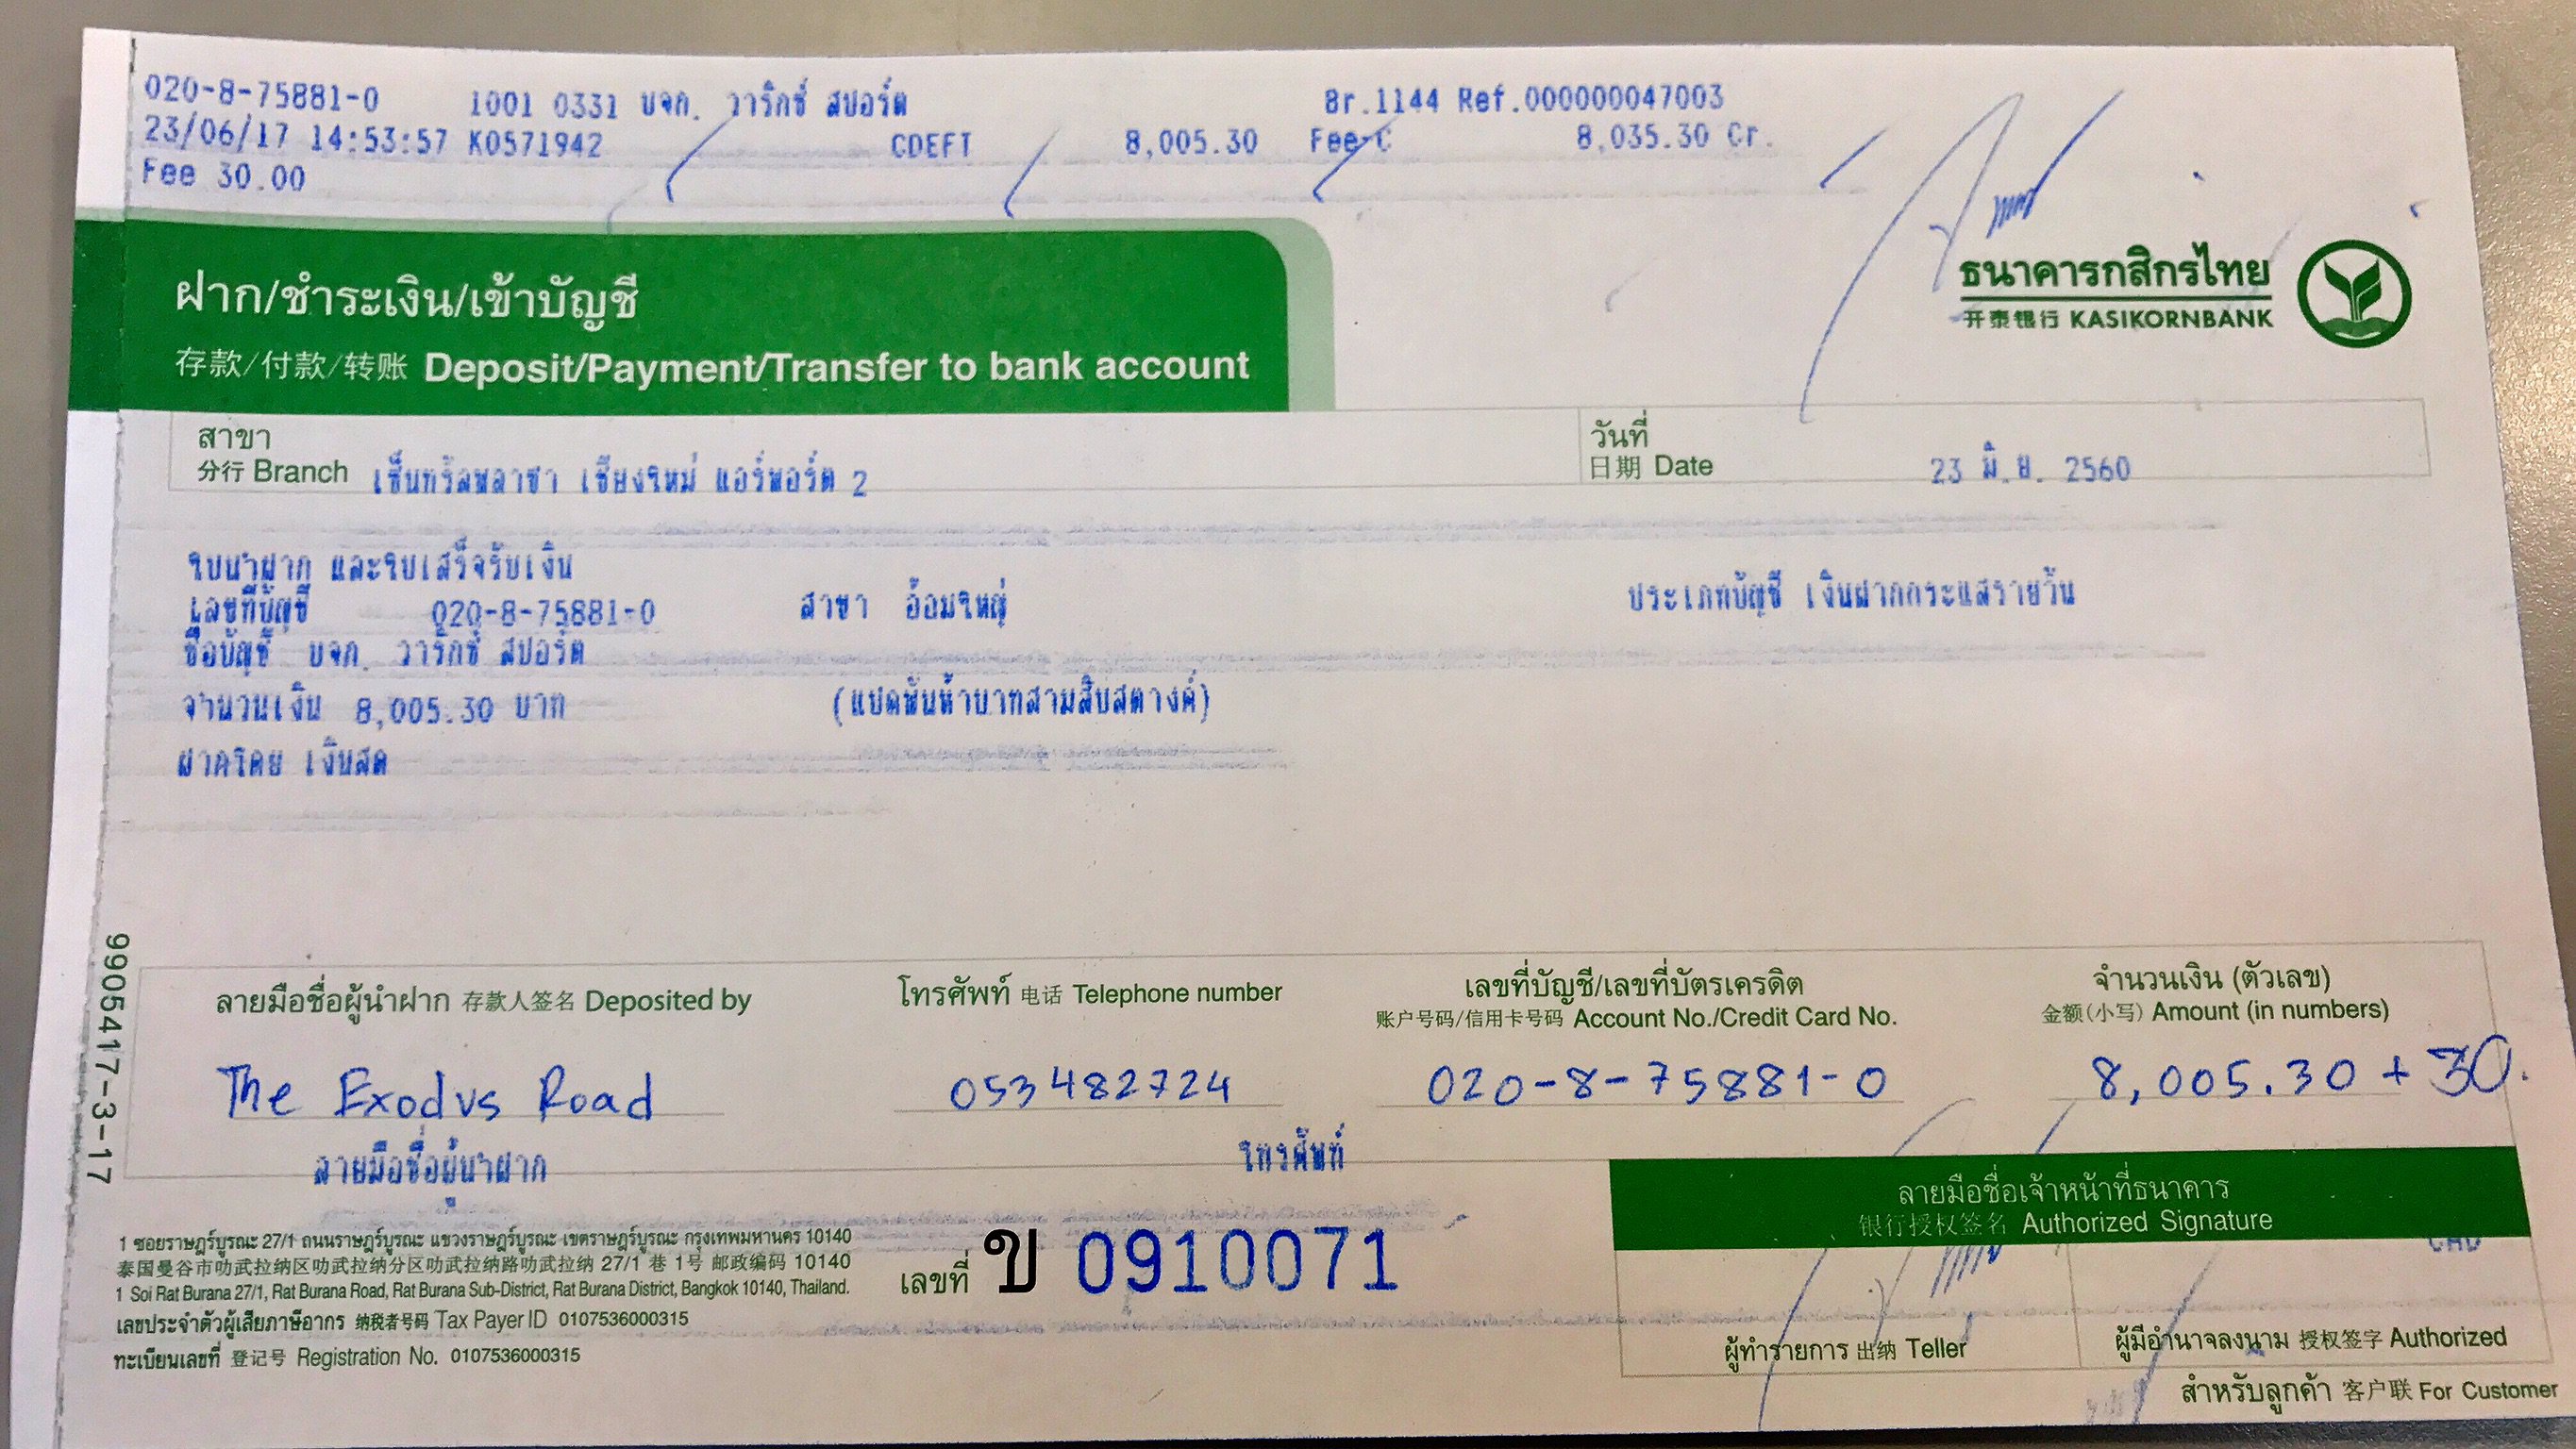 020-8-75881-0 1001 0331 บจก. วาริกซ์ สปอร์ต Br.1144 Ref.000000047003
23/06/17 14:53:57 K0571942 CDEFT 8,005.30 Fee-C 8,035.30 Cr.
Fee 30.00
ธนาคารกสิกรไทย
开泰银行 KASIKORNBANK
ฝาก/ชำระเงิน/เข้าบัญชี
存款/付款/转账 Deposit/Payment/Transfer to bank account
สาขา
分行 Branch เซ็นทรัลพลาซา เชียงใหม่ แอร์พอร์ต 2
วันที่
日期 Date 23 มิ.ย. 2560
ใบนำฝาก และใบเสร็จรับเงิน
เลขที่บัญชี 020-8-75881-0 สาขา อ้อมใหญ่ ประเภทบัญชี เงินฝากกระแสรายวัน
ชื่อบัญชี บจก. วาริกซ์ สปอร์ต
จำนวนเงิน 8,005.30 บาท (แปดพันห้าบาทสามสิบสตางค์)
ฝากโดย เงินสด
9905417-3-17
ลายมือชื่อผู้นำฝาก 存款人签名 Deposited by
The Exodus Road
ลายมือชื่อผู้นำฝาก
โทรศัพท์ 电话 Telephone number
053482724
โทรศัพท์
เลขที่บัญชี/เลขที่บัตรเครดิต
账户号码/信用卡号码 Account No./Credit Card No.
020-8-75881-0
จำนวนเงิน (ตัวเลข)
金额(小写) Amount (in numbers)
8,005.30 + 30.
1 ซอยราษฎร์บูรณะ 27/1 ถนนราษฎร์บูรณะ แขวงราษฎร์บูรณะ เขตราษฎร์บูรณะ กรุงเทพมหานคร 10140
泰国曼谷市叻武拉纳区叻武拉纳分区叻武拉纳路叻武拉纳 27/1 巷 1号 邮政编码 10140
1 Soi Rat Burana 27/1, Rat Burana Road, Rat Burana Sub-District, Rat Burana District, Bangkok 10140, Thailand.
เลขประจำตัวผู้เสียภาษีอากร 纳税者号码 Tax Payer ID 0107536000315
ทะเบียนเลขที่ 登记号 Registration No. 0107536000315
เลขที่ ข 0910071
ลายมือชื่อเจ้าหน้าที่ธนาคาร
银行授权签名 Authorized Signature
ผู้ทำรายการ 出纳 Teller
ผู้มีอำนาจลงนาม 授权签字 Authorized
สำหรับลูกค้า 客户联 For Customer